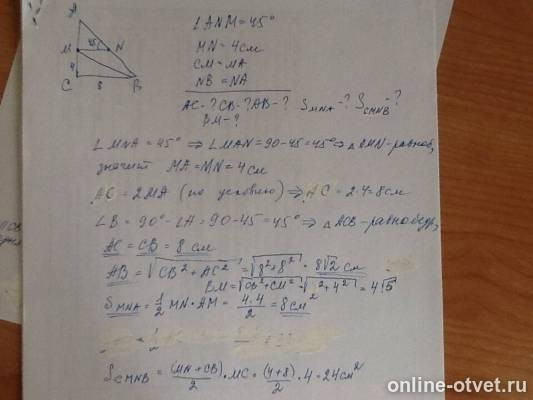 A
M 45° N
4
C 8 B
∠ANM = 45°
MN = 4см
CM = MA
NB = NA
AC-? CB-? AB-? S MNA -? S CMNB -?
BM-?
∠MNA = 45° ⇒ ∠MAN = 90-45=45° ⇒ △ -равноб,
значит MA = MN = 4 см
AC = 2MA (по условию) ⇒ AC = 2·4=8см
∠B = 90° - ∠A = 90-45 = 45° ⇒ △ACB-равнобедр,
AC = CB = 8 см
AB = √CB²+AC² = √8²+8² = 8√2 см
BM = √CB²+CM² = √ ²+4² = 4√5
S MNA = 1/2 MN·AM = 4·4/2 = 8см²
S CMNB = (MN+CB)/2 · MC = (4+8)/2 · 4 = 24см²
online-otvet.ru